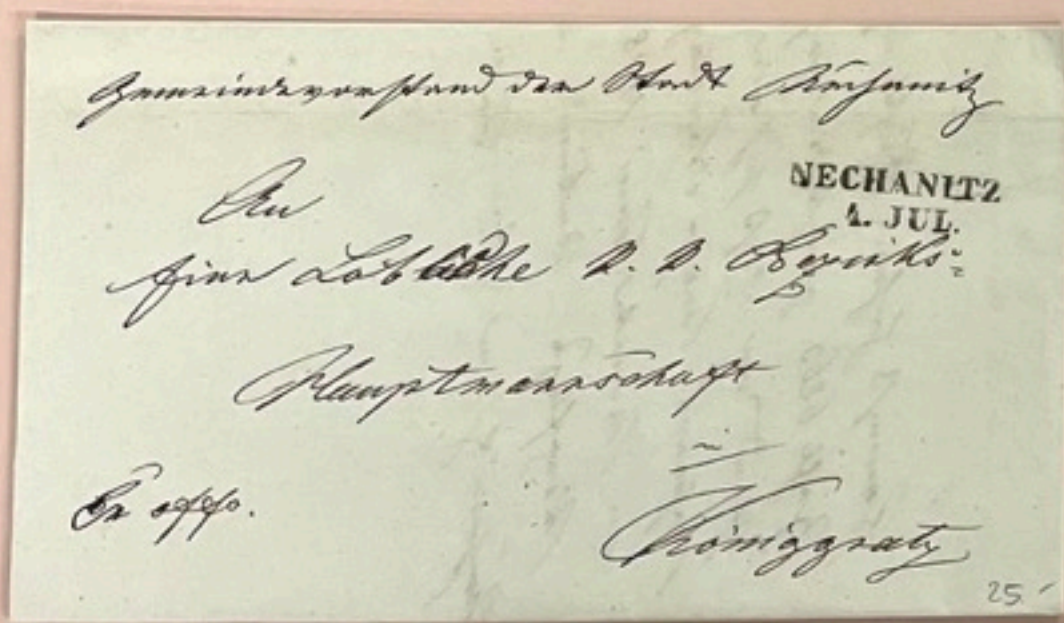 Gemeindevorstand der Stadt Nechanitz
NECHANITZ
1. JUL.
An
Eine Löbliche k. k. Bezirks-
Hauptmannschaft
in
Königgratz
Ex offo.
25